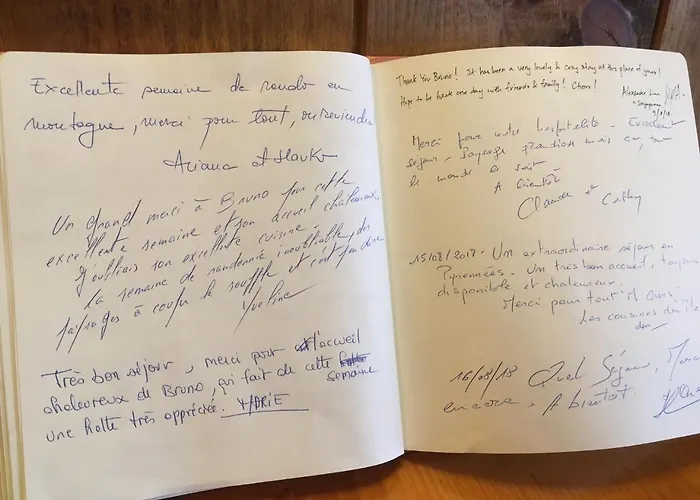 Excellente semaine de rando en
montagne, merci pour tout, on reviendra
Ariana et
Un grand merci à Bruno pour cette
excellente semaine et son accueil chaleureux.
J'oubliais son excellente cuisine.
La semaine de randonnée inoubliable, des
paysages à couper le souffle et c'est peu dire
Yveline
Très bon séjour, merci pour l'accueil
chaleureux de Bruno, qui fait de cette semaine
une halte très appréciée. MARIE
Thank You Bruno! It has been a very lovely & cozy stay at this place of yours!
Hope to be back one day with friends & family! Cheers!
Alexander
Singapore
Merci pour votre hospitalité - Excellent
séjour - Paysage grandiose mais ça, tout
le monde le sait
A bientôt
Claude et Cathy
15/08/2018 - Un extraordinaire séjour en
Pyrennées. Un très bon accueil, toujours
disponible et chaleureux.
Merci pour tout
Les cousines des îles
16/08/18 Quel Séjour, Merci
encore, A bientôt.